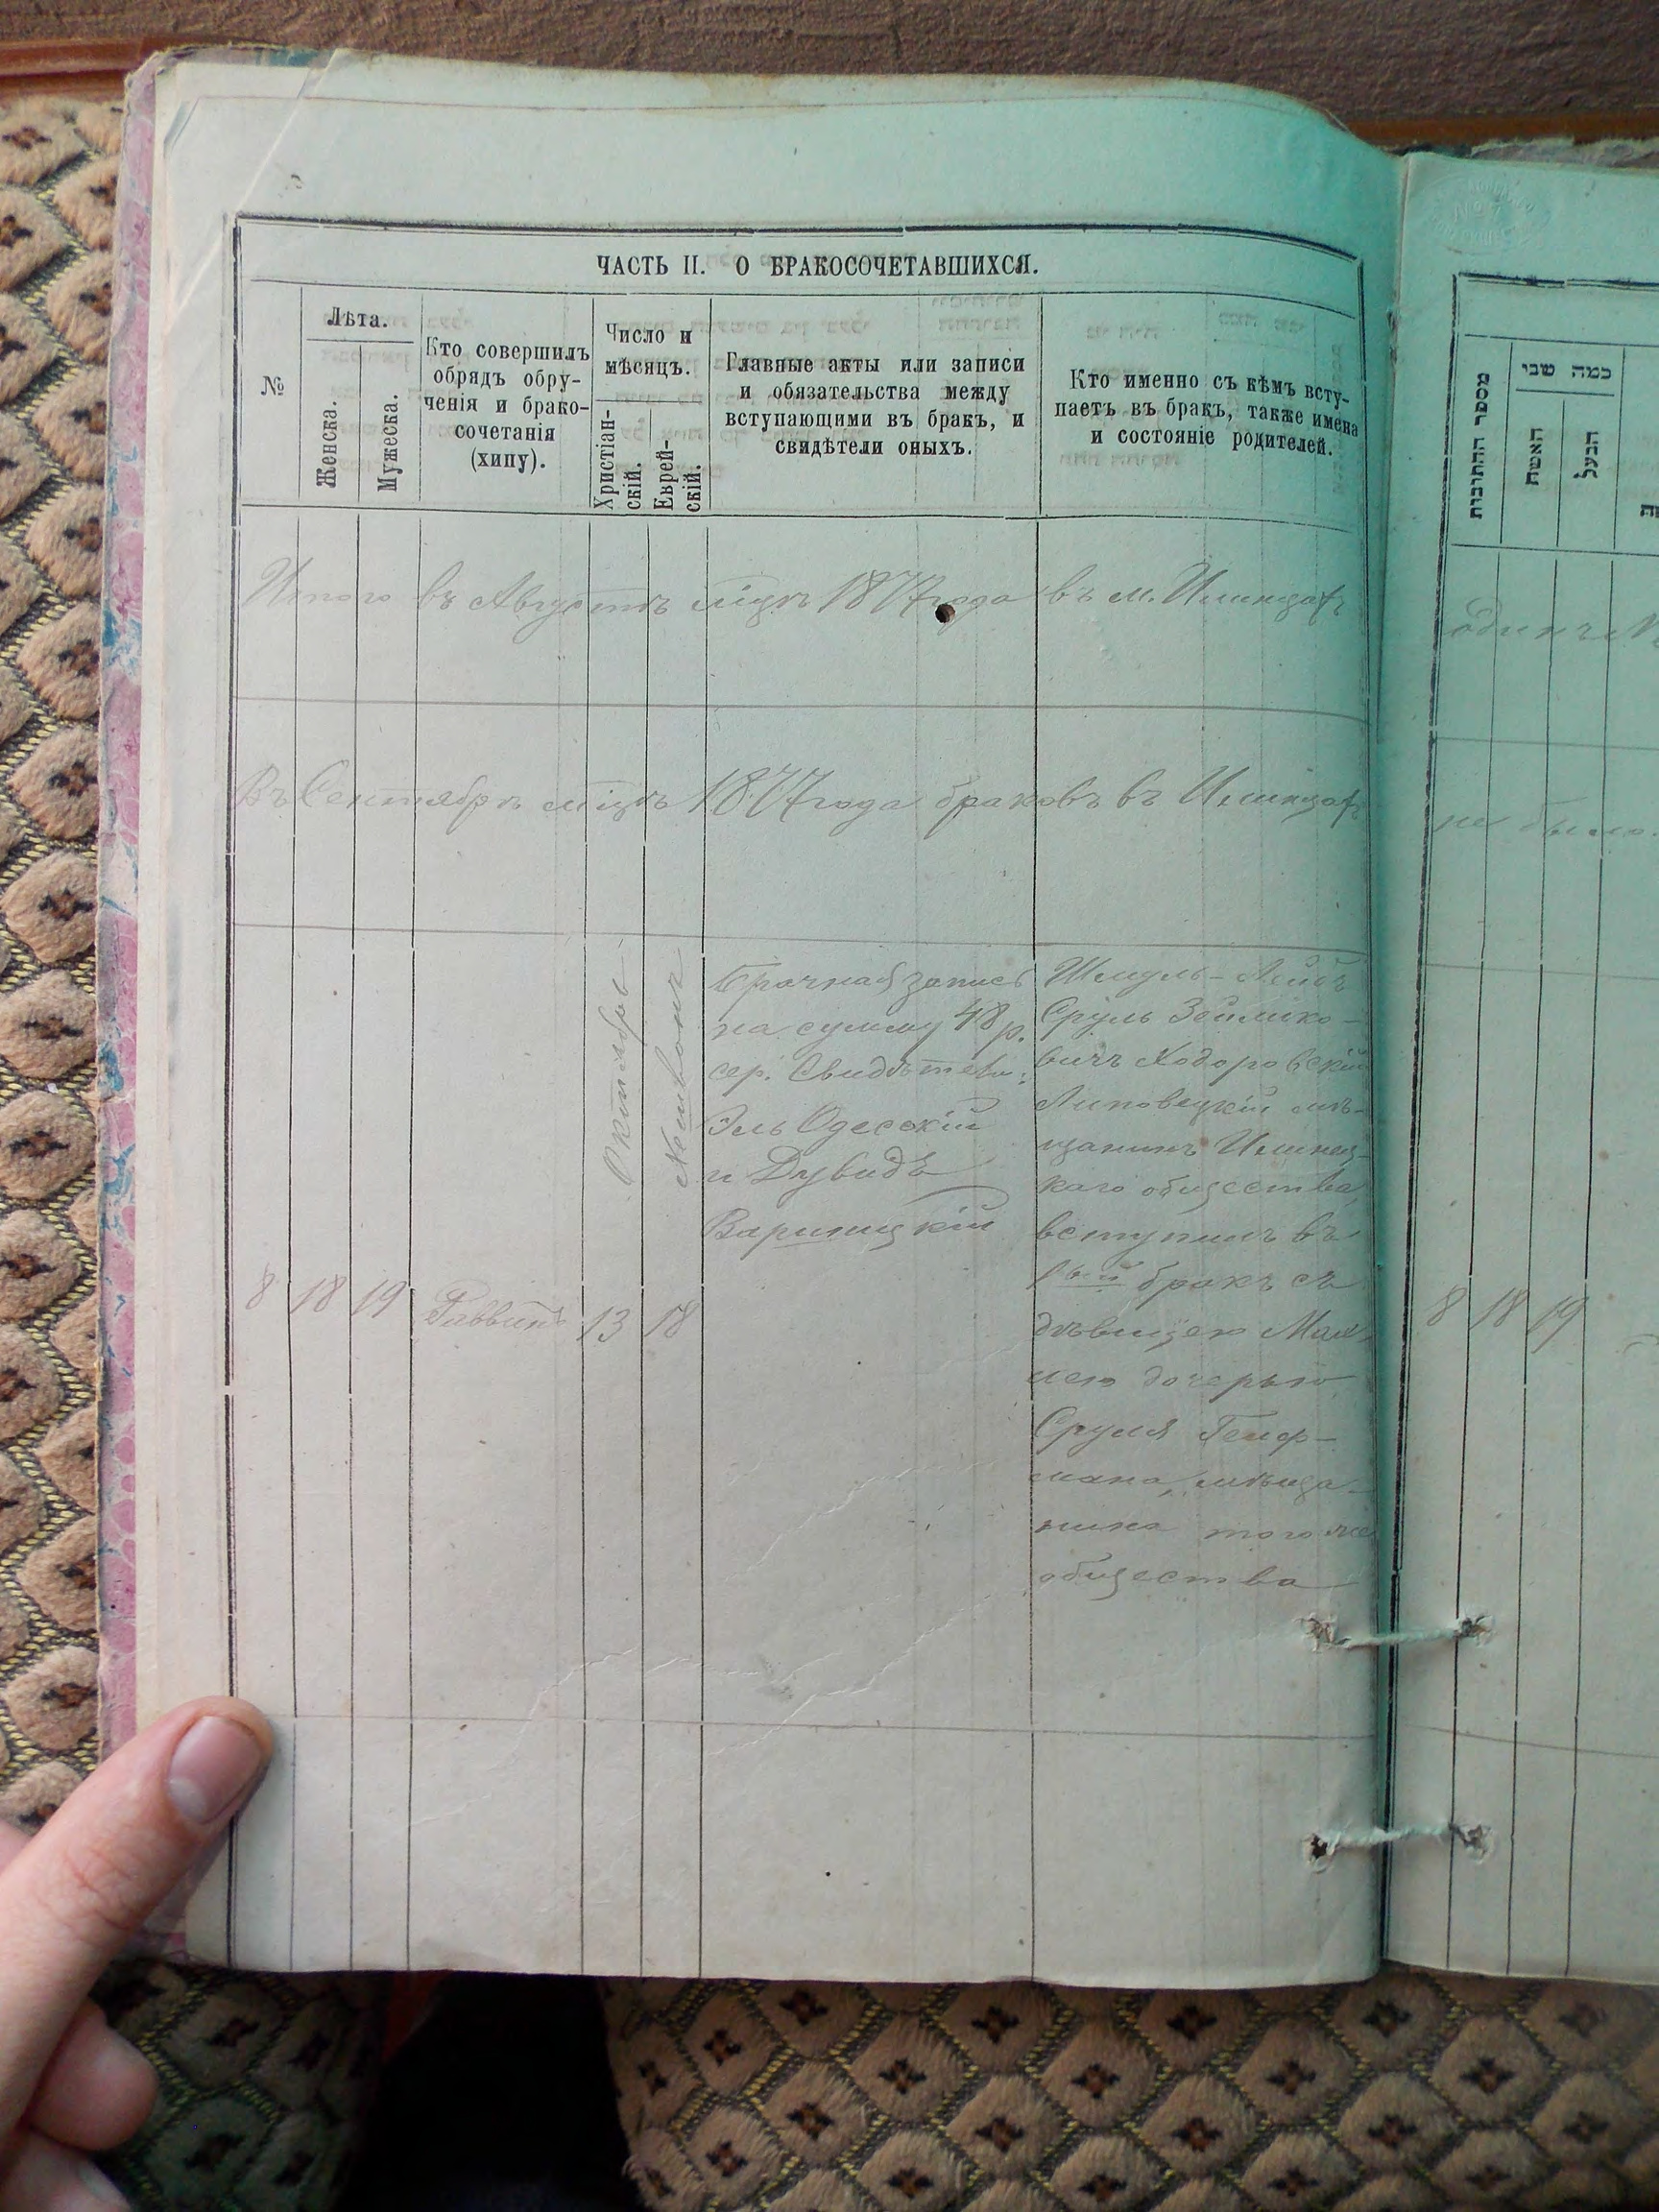 ЧАСТЬ II. О БРАКОСОЧЕТАВШИХСЯ.
№
Лѣта.
Женска.
Мужеска.
Кто совершилъ
обрядъ обру-
ченія и брако-
сочетанія
(хипу).
Число и
мѣсяцъ.
Христіан-
скій.
Еврей-
скій.
Главные акты или записи
и обязательства между
вступающими въ бракъ, и
свидѣтели оныхъ.
Кто именно съ кѣмъ всту-
паетъ въ бракъ, также имена
и состояніе родителей.
Итого въ Августѣ мцѣ 1877 года въ м. Илинцахъ
Въ Сентябрѣ мцѣ 1877 года браковъ въ Илинцахъ
8
18
19
Раввинъ
Октября
13
18
Брачная запись
на сумму 48 р.
сер. Свидѣтели:
Эль Одесскій
и Дувидъ
Вариницкій
Шмуль-Лейбъ
Сруль Зейлико-
вичъ Ходоровскій
Липовецкій мѣ-
щанинъ Илинец-
каго общества
вступилъ въ
1вый бракъ съ
дѣвицею
дочерью
Сруля Гелф-
мана, мѣща-
нина того же
общества
מספר החתונות
כמה שני
האשה
הבעל
одинъ
не было.
8
18
19